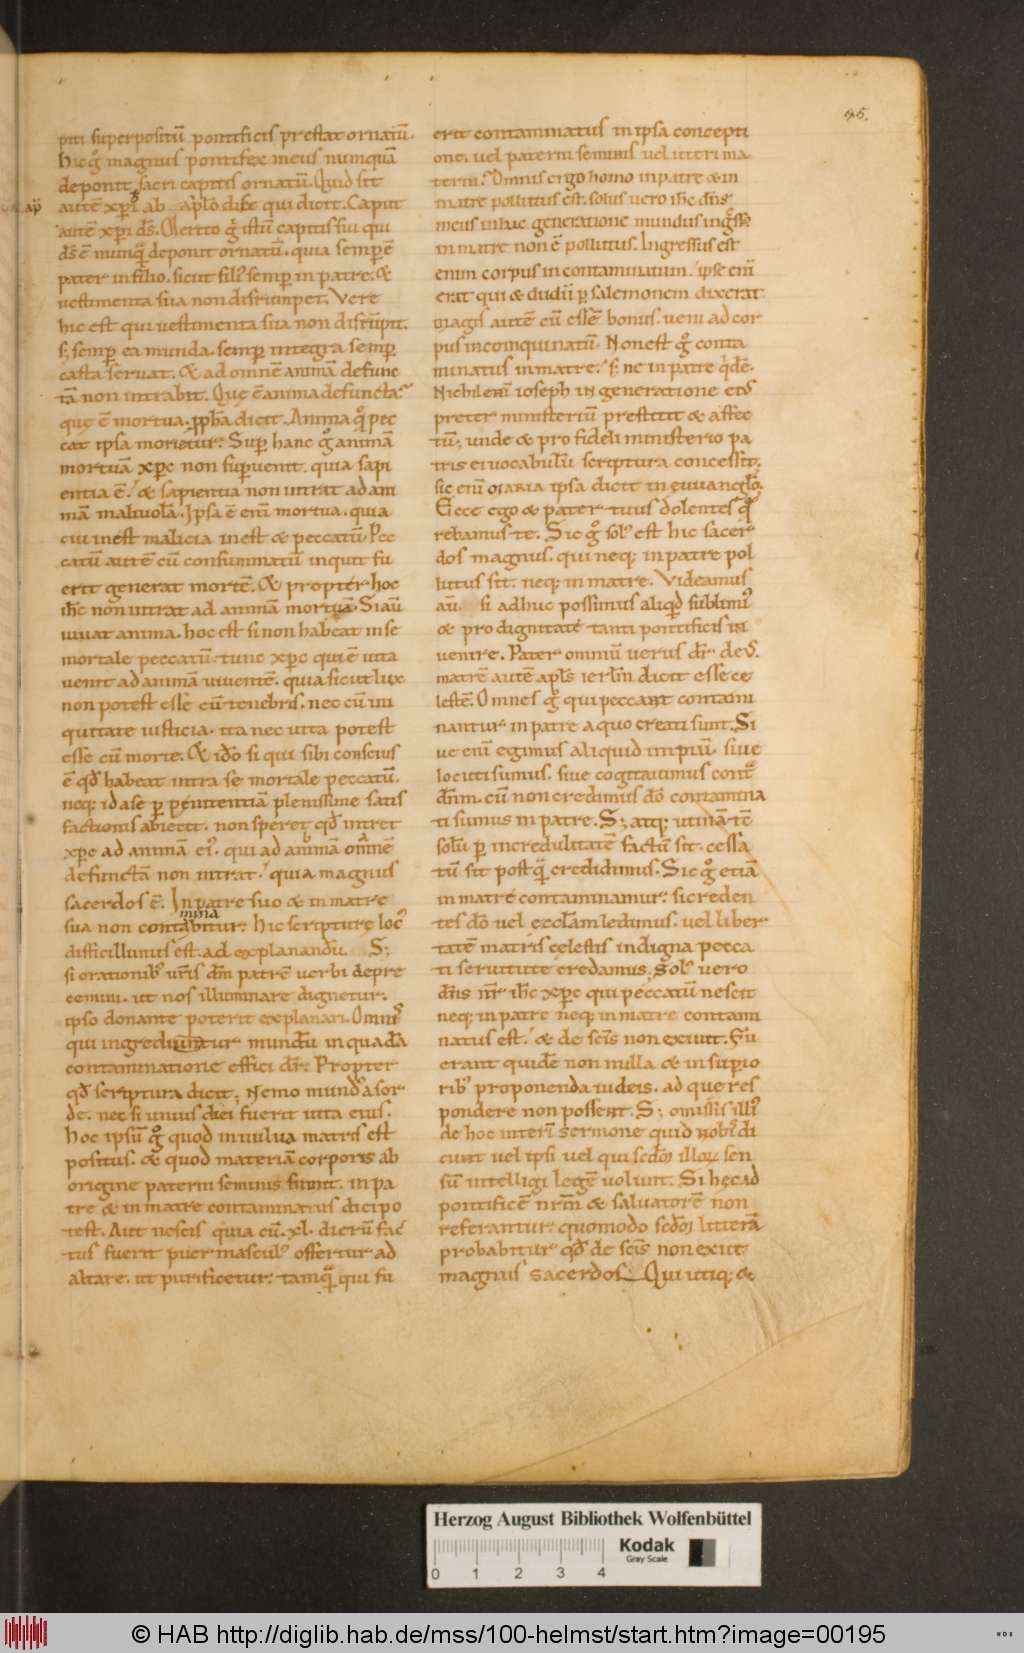 95.
piti superpositū pontificis prestat ornatū.
hic g̊ magnus pontifex meus nunquā
deponit sacri capitis ornatū. Quid sit
autē xpī ab aplo disce qui dicit. Caput
autē xpi ds̄. Merito g̊ istū capitis sui qui
ds̄ ē nunquā deponit ornatū. quia semp ē
pater in filio. sicut filiꝰ semp in patre. &
uestimenta sua non disrumpet. Vere
hic est qui uestimenta sua non disrūpit.
s; semp ea munda. semp integra semp
casta seruat. & ad omnē animā defunc
tā non intrabit. Quę ē anima defuncta?
quę ē mortua. ppħa dicit. Anima quę pec
cat ipsa morietur. Sup hanc g̊ animā
mortuā xpc non supuenit. quia sapi
entia ē. & sapientia non intrat ad ani
mā maliuolā. Ipsa ē enī mortua. quia
cui inest malicia inest & peccatū. Pec
catū autē cū consummatū inquit fu
erit generat mortē. & propter hoc
ihc̄ non intrat ad animā mortuā. Si aū
uiuat anima. hoc est si non habeat in se
mortale peccatū. tunc xpc qui ē uita
uenit ad animā uiuentē. quia sicut lux
non potest esse cū tenebris. nec cū ini
quitate iusticia. ita nec uita potest
esse cū morte. & idō si qui sibi conscius
ē qđ habeat intra se mortale peccatū.
neq; id a se p pęnitentiā plenissime satis
factionis abiecit. non speret qđ intret
xpc ad animā eiꝰ. qui ad animā omnē
defunctā non intrat. quia magnus
sacerdos ē. In patre suo & in matre
mina
sua non contabitur. hic scripturę locꝰ
difficillimus est. ad explanandū. S;
si orationibꝰ uris dm̄ patrē uerbi depre
cemini. ut nos illuminare dignetur.
ipso donante poterit explanari. Omnis
qui ingreditur mundū in quadā
contaminatione effici dr̄. Propter
qđ scriptura dicit. Nemo mundꝰ a sor
de. nec si unius diei fuerit uita eius.
hoc ipsū g̊ quod in uulua matris est
positus. & quod materiā corporis ab
origine paterni seminis sumit. in pa
tre & in matre contaminatus dici po
test. Aut nescis quia cū .xl. dierū fac
tus fuerit puer masculꝰ offertur ad
altare. ut purificetur. tamquā qui fu
erit contaminatus in ipsa concepti
one. uel paterni seminis uel uteri ma
terni. Omnis ergo homo in patre & in
matre pollutus est. solus uero ihc̄ dn̄s
meus in hac generatione mundus ingssꝰ
in matre non ē pollutus. Ingressus est
enim corpus incontaminatum. ipse enī
erat qui & dudū p salemonem dixerat.
magis autē cū essē bonus. ueni ad cor
pus incoinquinatū. Non est g̊ conta
minatus in matre. s; nec in patre qdē.
Nichil enī ioseph in generatione eiꝰ
preter ministeriū prestitit & affec
tū. unde & pro fideli ministerio pa
tris ei uocabulū scriptura concessit.
sic enī maria ipsa dicit in euuanglo.
Ecce ego & pater tuus dolentes quę
rebamus te. Sic g̊ solꝰ est hic sacer
dos magnus. qui neq; in patre pol
lutus sit. neq; in matre. Videamus
aū si adhuc possimus aliqđ sublimiꝰ
& pro dignitate tanti pontificis in
uenire. Pater omniū uerus dr̄ deꝰ.
matrē autē apls ierlm̄ dicit esse ce
lestē. Omnes g̊ qui peccant contami
nantur in patre a quo creati sunt. Si
ue enī egimus aliquid impiū. siue
locuti sumus. siue cogitauimus contra
dnm̄. cū non credimus dō contamina
ti sumus in patre. S; atq; utinā tē
solū p incredulitatē factū sit. cessa
tū sit postquā credidimus. Sic g̊ etiā
in matre contaminamur. si creden
tes dō uel ecclam ledimus. uel liber
tatē matris cęlestis indigna pecca
ti seruitute credamus. Solꝰ uero
dn̄s nr̄ ihc̄ xpc qui peccatū nescit
neq; in patre neq; in matre contami
natus est. & de scis̄ non exiuit. Fu
erant quidē non nulla & in supio
ribꝰ proponenda iudeis. ad que res
pondere non possent. S; omissis illis
de hoc interī sermone quid nobis di
cunt uel ipsi uel qui scdm illoꝝ sen
sū intelligi legē uolunt. Si hęc ad
pontificē nrm̄ & saluatorē non
referantur. quomodo scdm litterā
probabitur qđ de scis̄ non exiit
magnus sacerdos. Qui utiq; &
Herzog August Bibliothek Wolfenbüttel
Kodak
Gray Scale
0 1 2 3 4
© HAB http://diglib.hab.de/mss/100-helmst/start.htm?image=00195